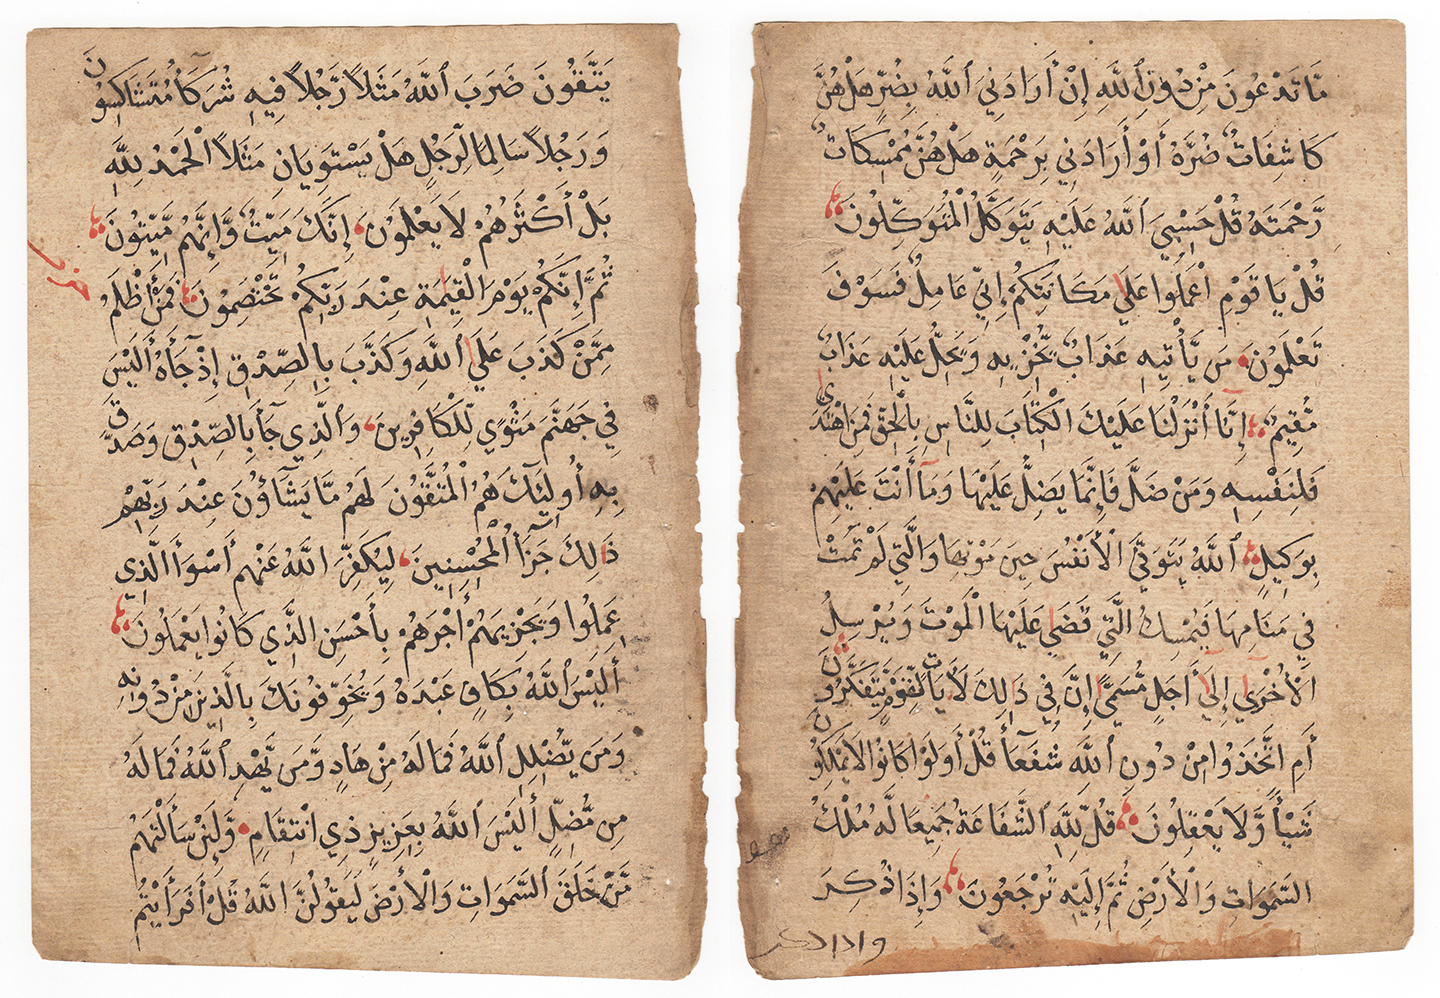 يَتَّقُونَ ضَرَبَ ٱللَّهُ مَثَلاً رَّجُلاً فِيهِ شُرَكَآءُ مُتَشَاكِسُونَ
وَرَجُلاً سَالِمًا لِّرَجُلٍ هَلْ يَسْتَوِيَانِ مَثَلاً الْحَمْدُ لِلَّهِ
بَلْ أَكْثَرُهُمْ لَا يَعْلَمُونَ إِنَّكَ مَيِّتٌ وَّإِنَّهُم مَّيِّتُونَ
حزب
ثُمَّ إِنَّكُمْ يَوْمَ الْقِيَمَةِ عِنْدَ رَبِّكُمْ تَخْتَصِمُونَ فَمَنْ أَظْلَمُ
مِمَّنْ كَذَبَ عَلَي ٱللَّهِ وَكَذَّبَ بِالصِّدْقِ إِذْ جَآءَهُ أَلَيْسَ
فِي جَهَنَّمَ مَثْوًي لِّلْكَافِرِينَ وَالَّذِي جَآءَ بِالصِّدْقِ وَصَدَّقَ
بِهِ أُولَئِكَ هُمُ الْمُتَّقُونَ لَهُمْ مَّا يَشَآؤُنَ عِنْدَ رَبِّهِمْ
ذَالِكَ جَزَآءُ الْمُحْسِنِينَ لِيُكَفِّرَ اللَّهُ عَنْهُم أَسْوَأَ الَّذِي
عَمِلُوا وَيَجْزِيَهُمْ أَجْرَهُمْ بِأَحْسَنِ الَّذِي كَانُوا يَعْمَلُونَ
أَلَيْسَ ٱللَّهُ بِكَافٍ عَبْدَهُ وَيُخَوِّفُونَكَ بِالَّذِينَ مِنْ دُونِهِ
وَمَن يُّضْلِلِ ٱللَّهُ فَمَا لَهُ مِنْ هَادٍ وَّمَن يَّهْدِ ٱللَّهُ فَمَا لَهُ
مِن مُّضِلٍّ أَلَيْسَ ٱللَّهُ بِعَزِيزٍ ذِي انْتِقَامٍ وَّلَئِنْ سَأَلْتَهُمْ
مَّنْ خَلَقَ ٱلسَّمَوَاتِ وَالْأَرْضَ لَيَقُولُنَّ اللَّهُ قُلْ أَفَرَأَيْتُمْ
مَّا تَدْعُونَ مِنْ دُونِ ٱللَّهِ إِنْ أَرَادَنِي ٱللَّهُ بِضُرٍّ هَلْ هُنَّ
كَاشِفَاتٌ ضُرَّهُ أَوْ أَرَادَنِي بِرَحْمَةٍ هَلْ هُنَّ مُمْسِكَاتٌ
رَّحْمَتَهُ قُلْ حَسْبِيَ ٱللَّهُ عَلَيْهِ يَتَوَكَّلُ الْمُتَوَكِّلُونَ
قُلْ يَا قَوْمِ اعْمَلُوا عَلَي مَكَانَتِكُمْ إِنِّي عَامِلٌ فَسَوْفَ
تَعْلَمُونَ مَن يَّأْتِيهِ عَذَابٌ يُّخْزِيهِ وَيَحِلُّ عَلَيْهِ عَذَابٌ
مُّقِيمٌ إِنَّا أَنْزَلْنَا عَلَيْكَ الْكِتَابَ لِلنَّاسِ بِالْحَقِّ فَمَنِ اهْتَدَي
فَلِنَفْسِهِ وَمَنْ ضَلَّ فَإِنَّمَا يَضِلُّ عَلَيْهَا وَمَآ أَنْتَ عَلَيْهِمْ
بِوَكِيلٍ ٱللَّهُ يَتَوَفَّي الْأَنْفُسَ حِينَ مَوْتِهَا وَالَّتِي لَمْ تَمُتْ
فِي مَنَامِهَا فَيُمْسِكُ الَّتِي قَضَي عَلَيْهَا الْمَوْتَ وَيُرْسِلُ
الْأُخْرَي إِلَي أَجَلٍ مُّسَمًّي إِنَّ فِي ذَالِكَ لَأَيَاتٍ لِّقَوْمٍ يَتَفَكَّرُونَ
أَمِ اتَّخَذُوا مِنْ دُونِ ٱللَّهِ شُفَعَآءَ قُلْ أَوَلَوْ كَانُوا لَا يَمْلِكُونَ
شَيْأً وَّلَا يَعْقِلُونَ قُلْ لِلَّهِ الشَّفَاعَةُ جَمِيعًا لَّهُ مُلْكُ
السَّمَوَاتِ وَالْأَرْضِ ثُمَّ إِلَيْهِ تُرْجَعُونَ وَإِذَا ذُكِرَ
واذا ذكر